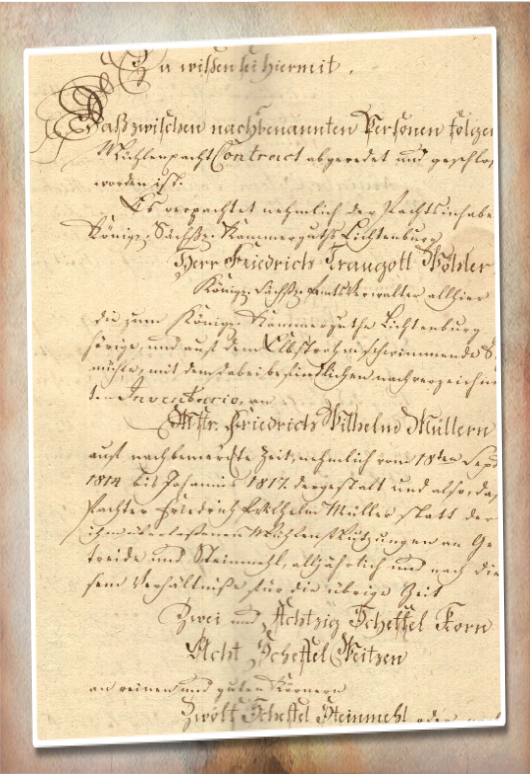 Zu wißen sei hiermit.
Daß zwischen nachbenannten Personen folgen
Mühlenpacht Contract abgeredet und geschlos
worden ist.
Es verpachtet nehmlich der Pachtsinhabe
Königl. Sächß. Kammerguths Lichtenburg
Herr Friedrich Traugott Wöhler
Königl. Sächß. Amtsverwalter allhier
die zum Königl. Kammerguthe Lichtenburg
hörige, und auf dem Elbstrohm schwimmende S
mühle, mit dem dabei befindlichen nachverzeichne
ten Inventario, an
Mstr. Friedrich Wilhelm Müllern
auf nachbemerkte Zeit, nehmlich vom 18ten Sept
1814 bis Johannis 1817. dergestalt und also, daß
Pachter Friedrich Wilhelm Müller statt der
ihm überlaßenen Mühlen Nutzungen an Ge
treide und Steinmehl, alljährlich und nach die
sem Verhältniße für die übrige Zeit
Zwei und Achtzig Scheffel Korn
Acht Scheffel Weitzen
an reinen und guten Körnern
Zwölf Scheffel Steinmehl oder